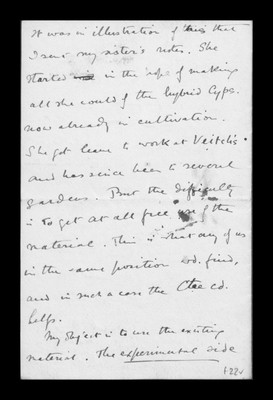 It was in illustration of this that
I sent my sister's notes. She
started in the hope of making
all she could of the hybrid Cyps.
now already in cultivation.
She got leave to work at Veitch's
and has since been to several
gardens. But the difficulty
is to get at all free use of the
material. This is what any of us
in the same position wd. find,
and in such a case the Ctee cd.
help.
My object is to use the existing
material. The experimental side